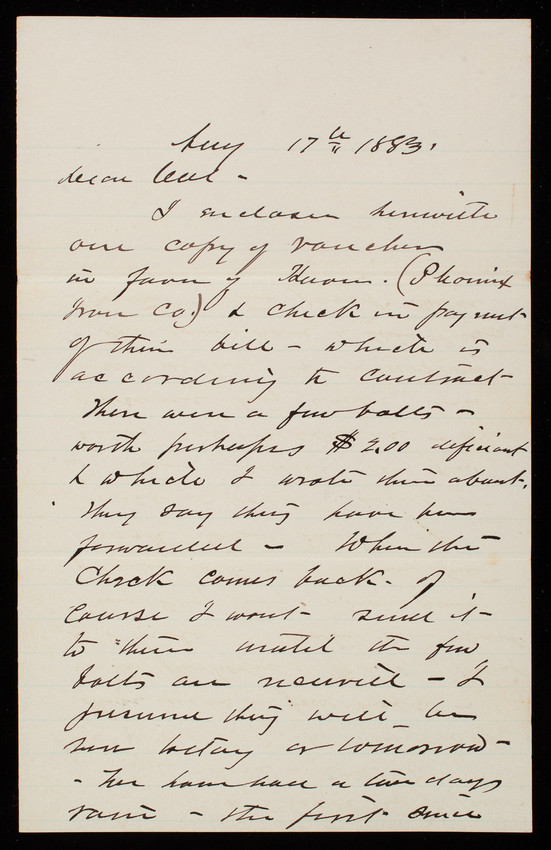 Aug 17th 1883.
Dear Col -
I enclose herewith
one copy of voucher
in favor of (Phoenix
Iron Co.) & check in payment
of their bill - which is
according to contract -
There were a few bolts -
worth perhaps $2.00 deficient
& which I wrote them about.
They say they have been
forwarded - When the
Check comes back - of
course I wont send it
to them until the few
bolts are received - I
presume they will be
here today or tomorrow -
- We have had a two days
rain - the first since